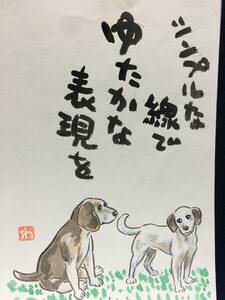 シンプルな
線で
ゆたかな
表現を